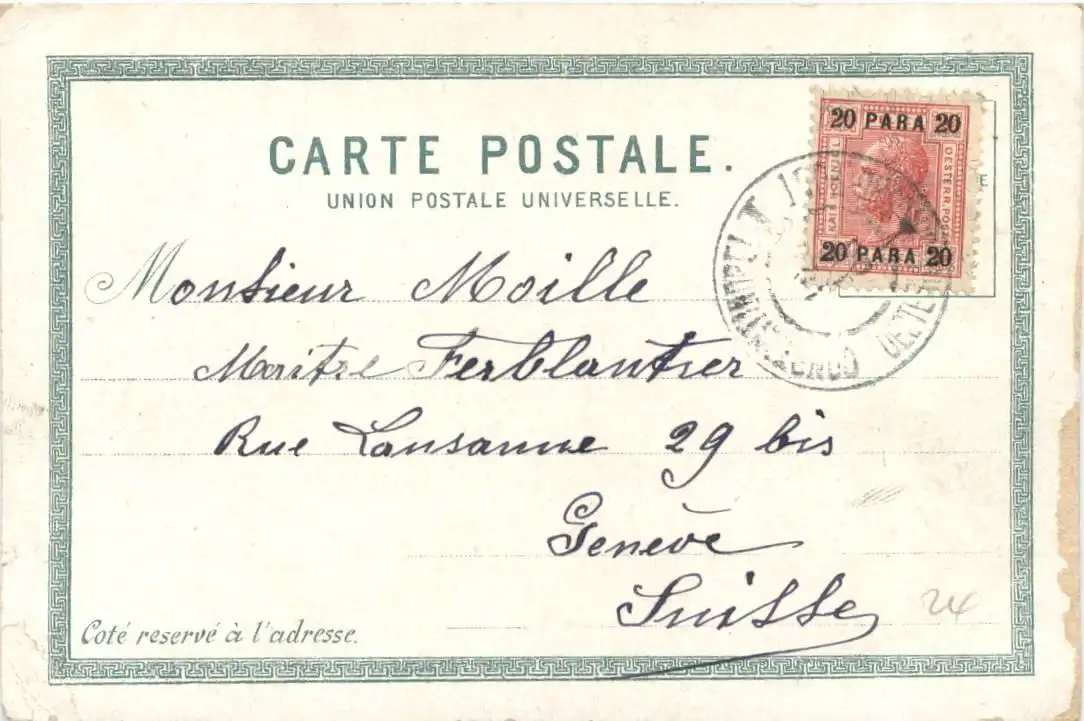 CARTE POSTALE.
UNION POSTALE UNIVERSELLE.
20 PARA 20
KAIS. KOENIGL.
OESTERR. POST
20 PARA 20
Monsieur Moille
Maitre Ferblantier
Rue Lausanne 29 bis
Genève
Suisse
Coté reservé à l'adresse.
24